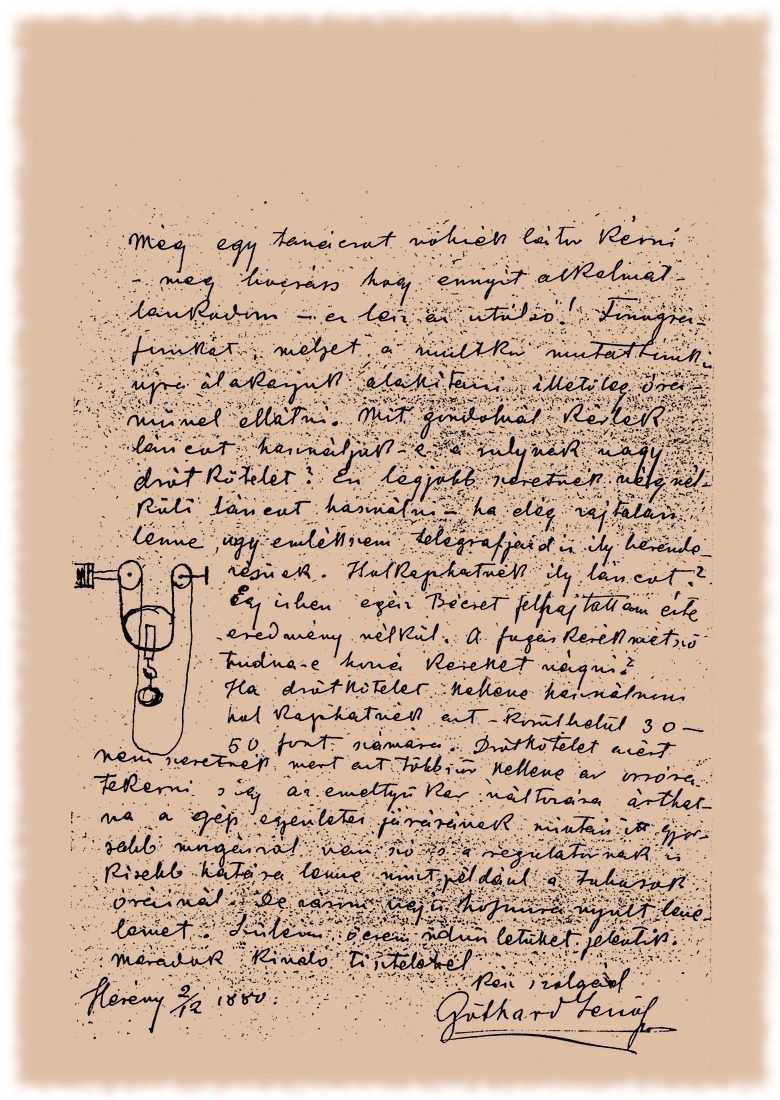 Még egy tanácsot vólnék bátor kérni
- meg bocsáss hogy ennyit alkalmat-
lankodom - ez lesz az utólsó! Finográ-
funkat, melyet a multkor mutattunk,
ujra át akarjuk alakitani illetőleg óra-
művel ellátni. Mit gondolnál kérlek
láncot használjuk-e a sulynak vagy
drót kötelet? Én legjobb szeretnék vég nél-
küli láncot használni - ha elég zajtalan
lenne, ugy emlékszem telegrafjaid is ily berende-
zésüek. Hol kaphatnék ily láncot?
Egy izben egész Bécset felhajtottam érte
eredmény nélkül. A fogaskerékmetsző
tudna-e hozzá kereket vágni?
Ha drótkötelet kellene használnom
hol kaphatnék azt - körülbelül 30-
50 font számára. Drótkötelet azért
nem szeretnék mert azt többször kellene az orsóra
tekerni s így az emeltyű kar változása árthat-
na a gép egyenletes járásának miután itt gyor-
sabb mogásról van szó s a regulatornak is
kisebb hatása lenne mint például a
óráinál. De várom is hosszura nyult leve-
lemet. Szüleim öcsém jelentik.
maradok kiváló tisztelettel
kész szolgád
Herény 2/12 1880.
Gothard Jenő